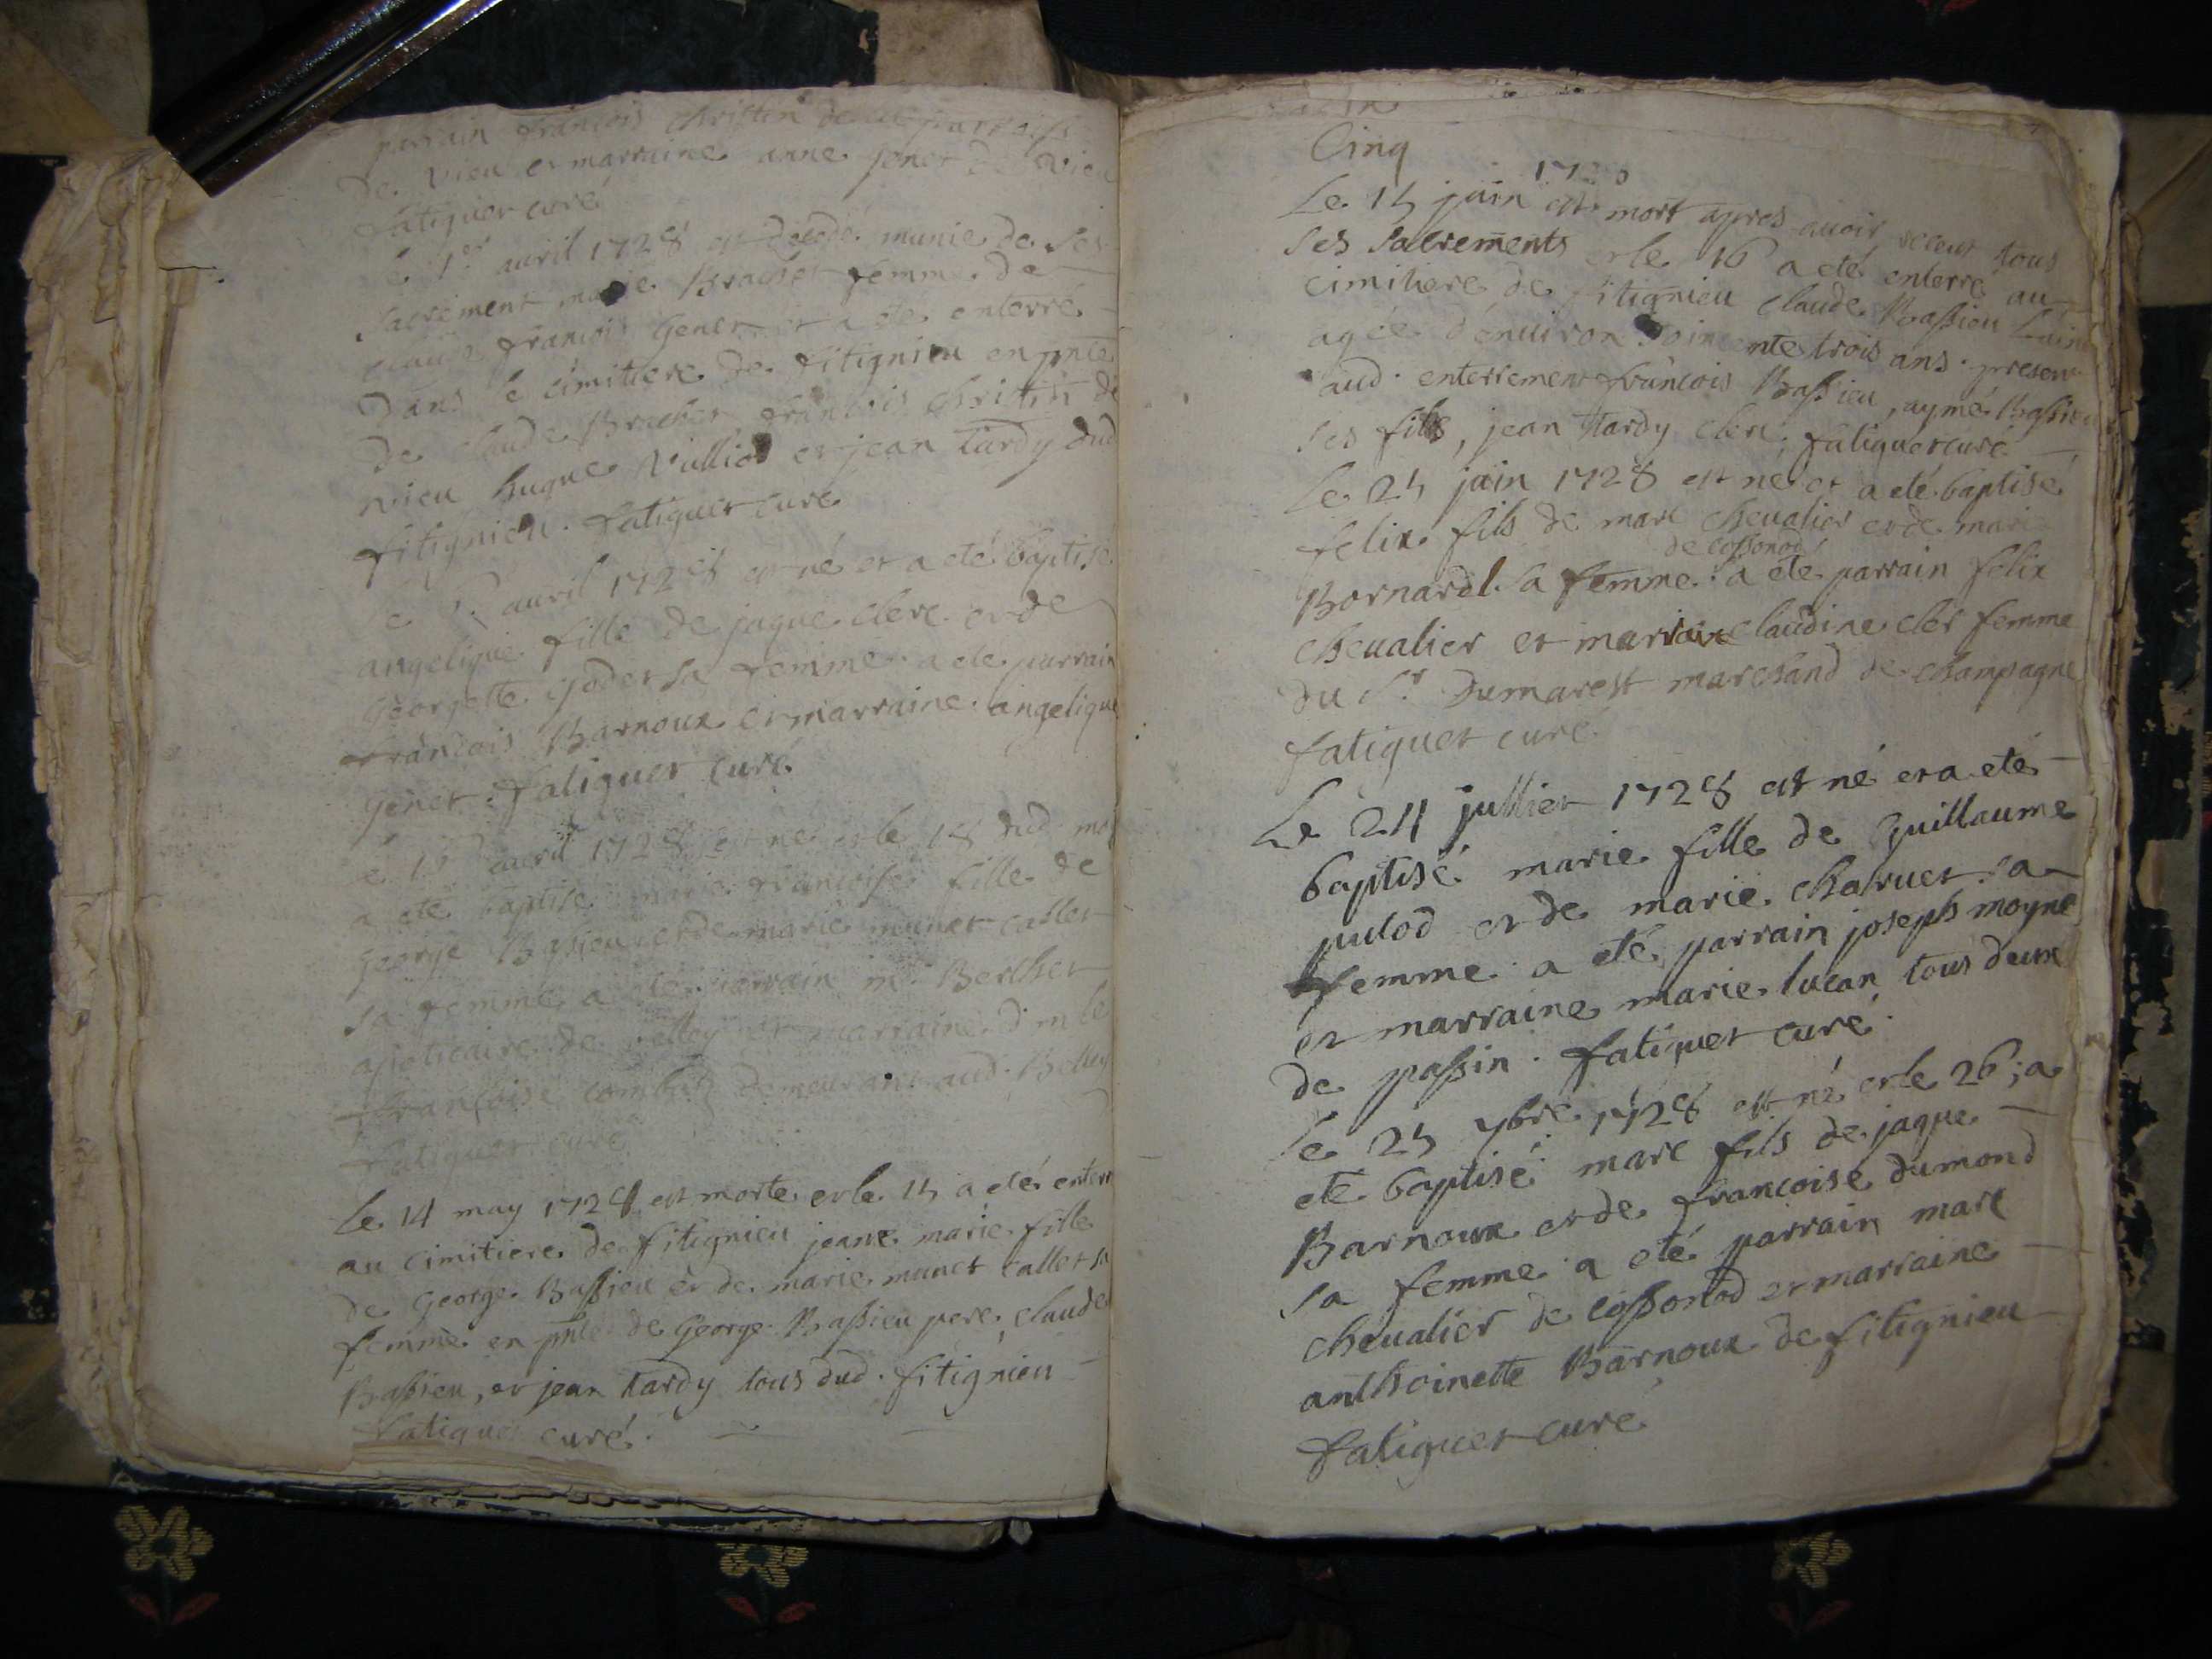 parrain francois christin de la parroisse
de vieu et marraine anne jenet de vieu
fatiguet curé
le 1er avril 1728 est decedé munie de ses
sacrement marie Brachet femme de
claude francois Genet et a eté enterré
dans le cimitiere de fitignieu en pnce
de claude Brachet francois christin de
vieu hugue Vulliod et jean tardy dud
fitignieu. fatiguet curé
le avril 1728 est né et a eté baptisé
angelique fille de jaque clerc et de
Georgette godet sa femme. a eté parrain
francois Barnoux et marraine angelique
Genet. fatiguet curé.
le avril 1728 est né et le 18 dud. moi
a eté baptisé marie francoise fille de
George Bassieu et de marie munet callet
sa femme, a eté parrain mr Berthet
apoticaire de belley et marraine
francoise demeurant aud. Belley
fatiguet curé
Le 14 may 1728 est morte et le 15 a eté enterré
au cimitiere de fitignieu jeane marie fille
de George Bassieu et de marie munet callet sa
femme en pnce de George Bassieu pere, claude
Bassieu, et jean tardy tous dud. fitignieu
fatiguet curé.
Cinq
1728
Le 15 juin est mort apres avoir receut tous
ses sacrements et le 16 a eté enterré au
cimitiere de fitignieu claude Bassieu Lainé
agée d'environ soincente trois ans. present
aud. enterrement francois Bassieu, aymé Bassieu
ses fils, jean tardy clerc, fatiguet curé
Le 25 juin 1728 est né et a eté baptisé
felix fils de marc chevalier et de marie
de cossonod
Bornard l. sa femme. a eté parrain felix
chevalier et marraine claudine cler femme
du Sr. Dumarest marchand de champagne
fatiguet curé.
Le 24 jullier 1728 est né et a eté
baptisé marie fille de Guillaume
pulod et de marie charvet sa
femme. a eté parrain joseph moyne
et marraine marie lucan tous deux
de passin. fatiguet curé.
Le 25 7bre. 1728 est né et le 26; a
eté baptisé marc fils de jaque
Barnoux et de francoise dumond
sa femme a eté parrain marc
chevalier de cossonod et marraine
anthoinette Barnoux de fitignieu
fatiguet curé